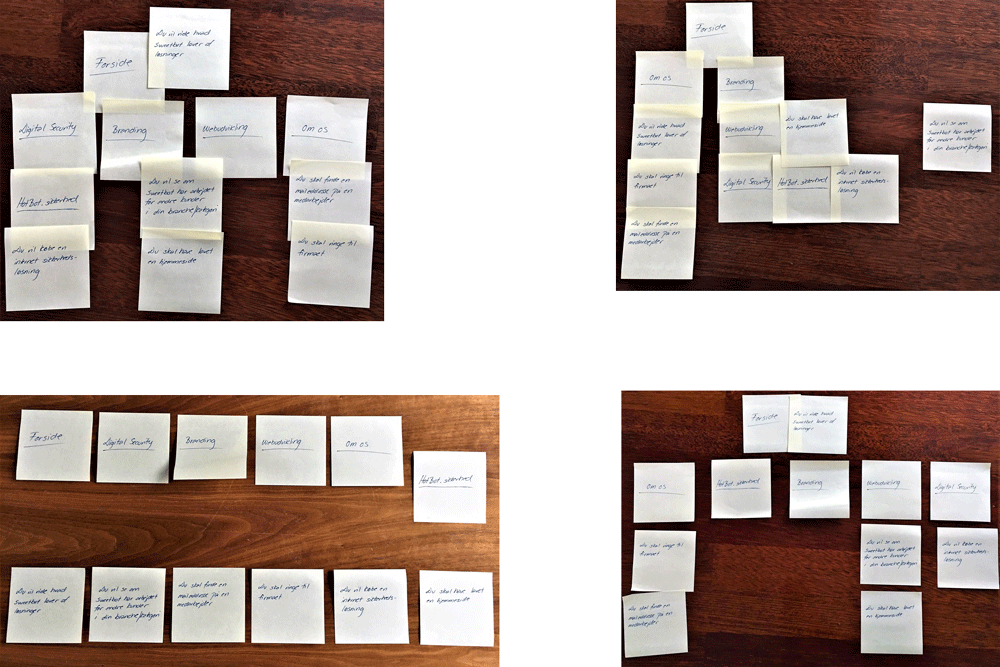 Forside
Du vil vide hvad
Sweetbot laver af
løsninger
Digital Security
Branding
Webudvikling
Om os
HotBot. sikkerhed
Du vil se om
Sweetbot har arbejdet
for andre kunder
i din branche/kategori
Du skal finde en
mailadresse på en
medarbejder
Du vil købe en
internet sikkerheds-
løsning
Du skal have lavet
en hjemmeside
Du skal ringe til
firmaet
Forside
Om os
Branding
Du vil vide hvad
Sweetbot laver af
løsninger
Webudvikling
Du skal have lavet
en hjemmeside
Du vil se om
Sweetbot har arbejdet
for andre kunder
i din branche/kategori
Du skal ringe til
firmaet
Digital Security
HotBot. sikkerhed
Du vil købe en
internet sikkerheds-
løsning
Du skal finde en
mailadresse på en
medarbejder
Forside
Digital Security
Branding
Webudvikling
Om os
HotBot. sikkerhed
Du vil vide hvad
Sweetbot laver af
løsninger
Du vil se om
Sweetbot har arbejdet
for andre kunder
i din branche/kategori
Du skal finde en
mailadresse på en
medarbejder
Du skal ringe til
firmaet
Du vil købe en
internet sikkerheds-
løsning
Du skal have lavet
en hjemmeside
Forside
Du vil vide hvad
Sweetbot laver af
løsninger
Om os
HotBot. sikkerhed
Branding
Webudvikling
Digital Security
Du skal ringe til
firmaet
Du vil se om
Sweetbot har arbejdet
for andre kunder
i din branche/kategori
Du vil købe en
internet sikkerheds-
løsning
Du skal finde en
mailadresse på en
medarbejder
Du skal have lavet
en hjemmeside